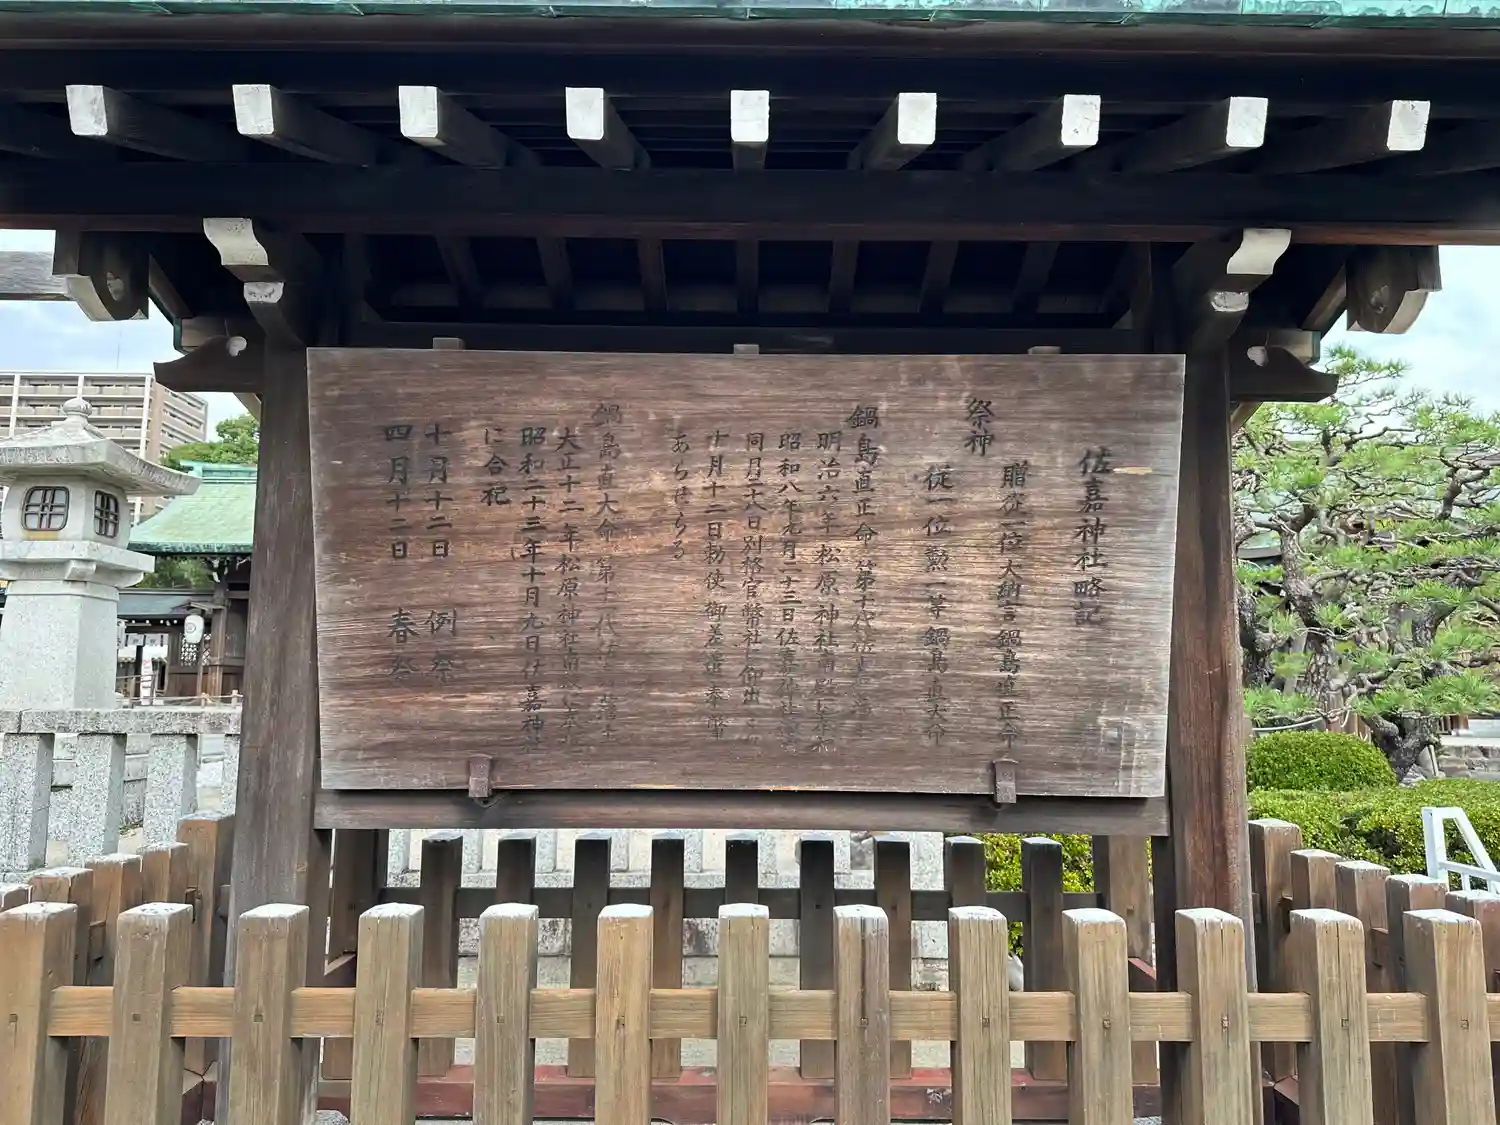 佐嘉神社略記
贈従一位大納言鍋島直正命
祭神
従一位勲一等鍋島直大命
鍋島直正命 第十代
明治六年松原神社南殿に
昭和八年九月二十三日佐嘉神社
同月二八日別格官幣社に仰出
十月十二日勅使御差遣奉幣
あらせらる
鍋島直大命 第十一代
大正十二年松原神社南殿に
昭和二十三年十月九日佐嘉神社
に合祀
十月十二日 例祭
四月十二日 春祭